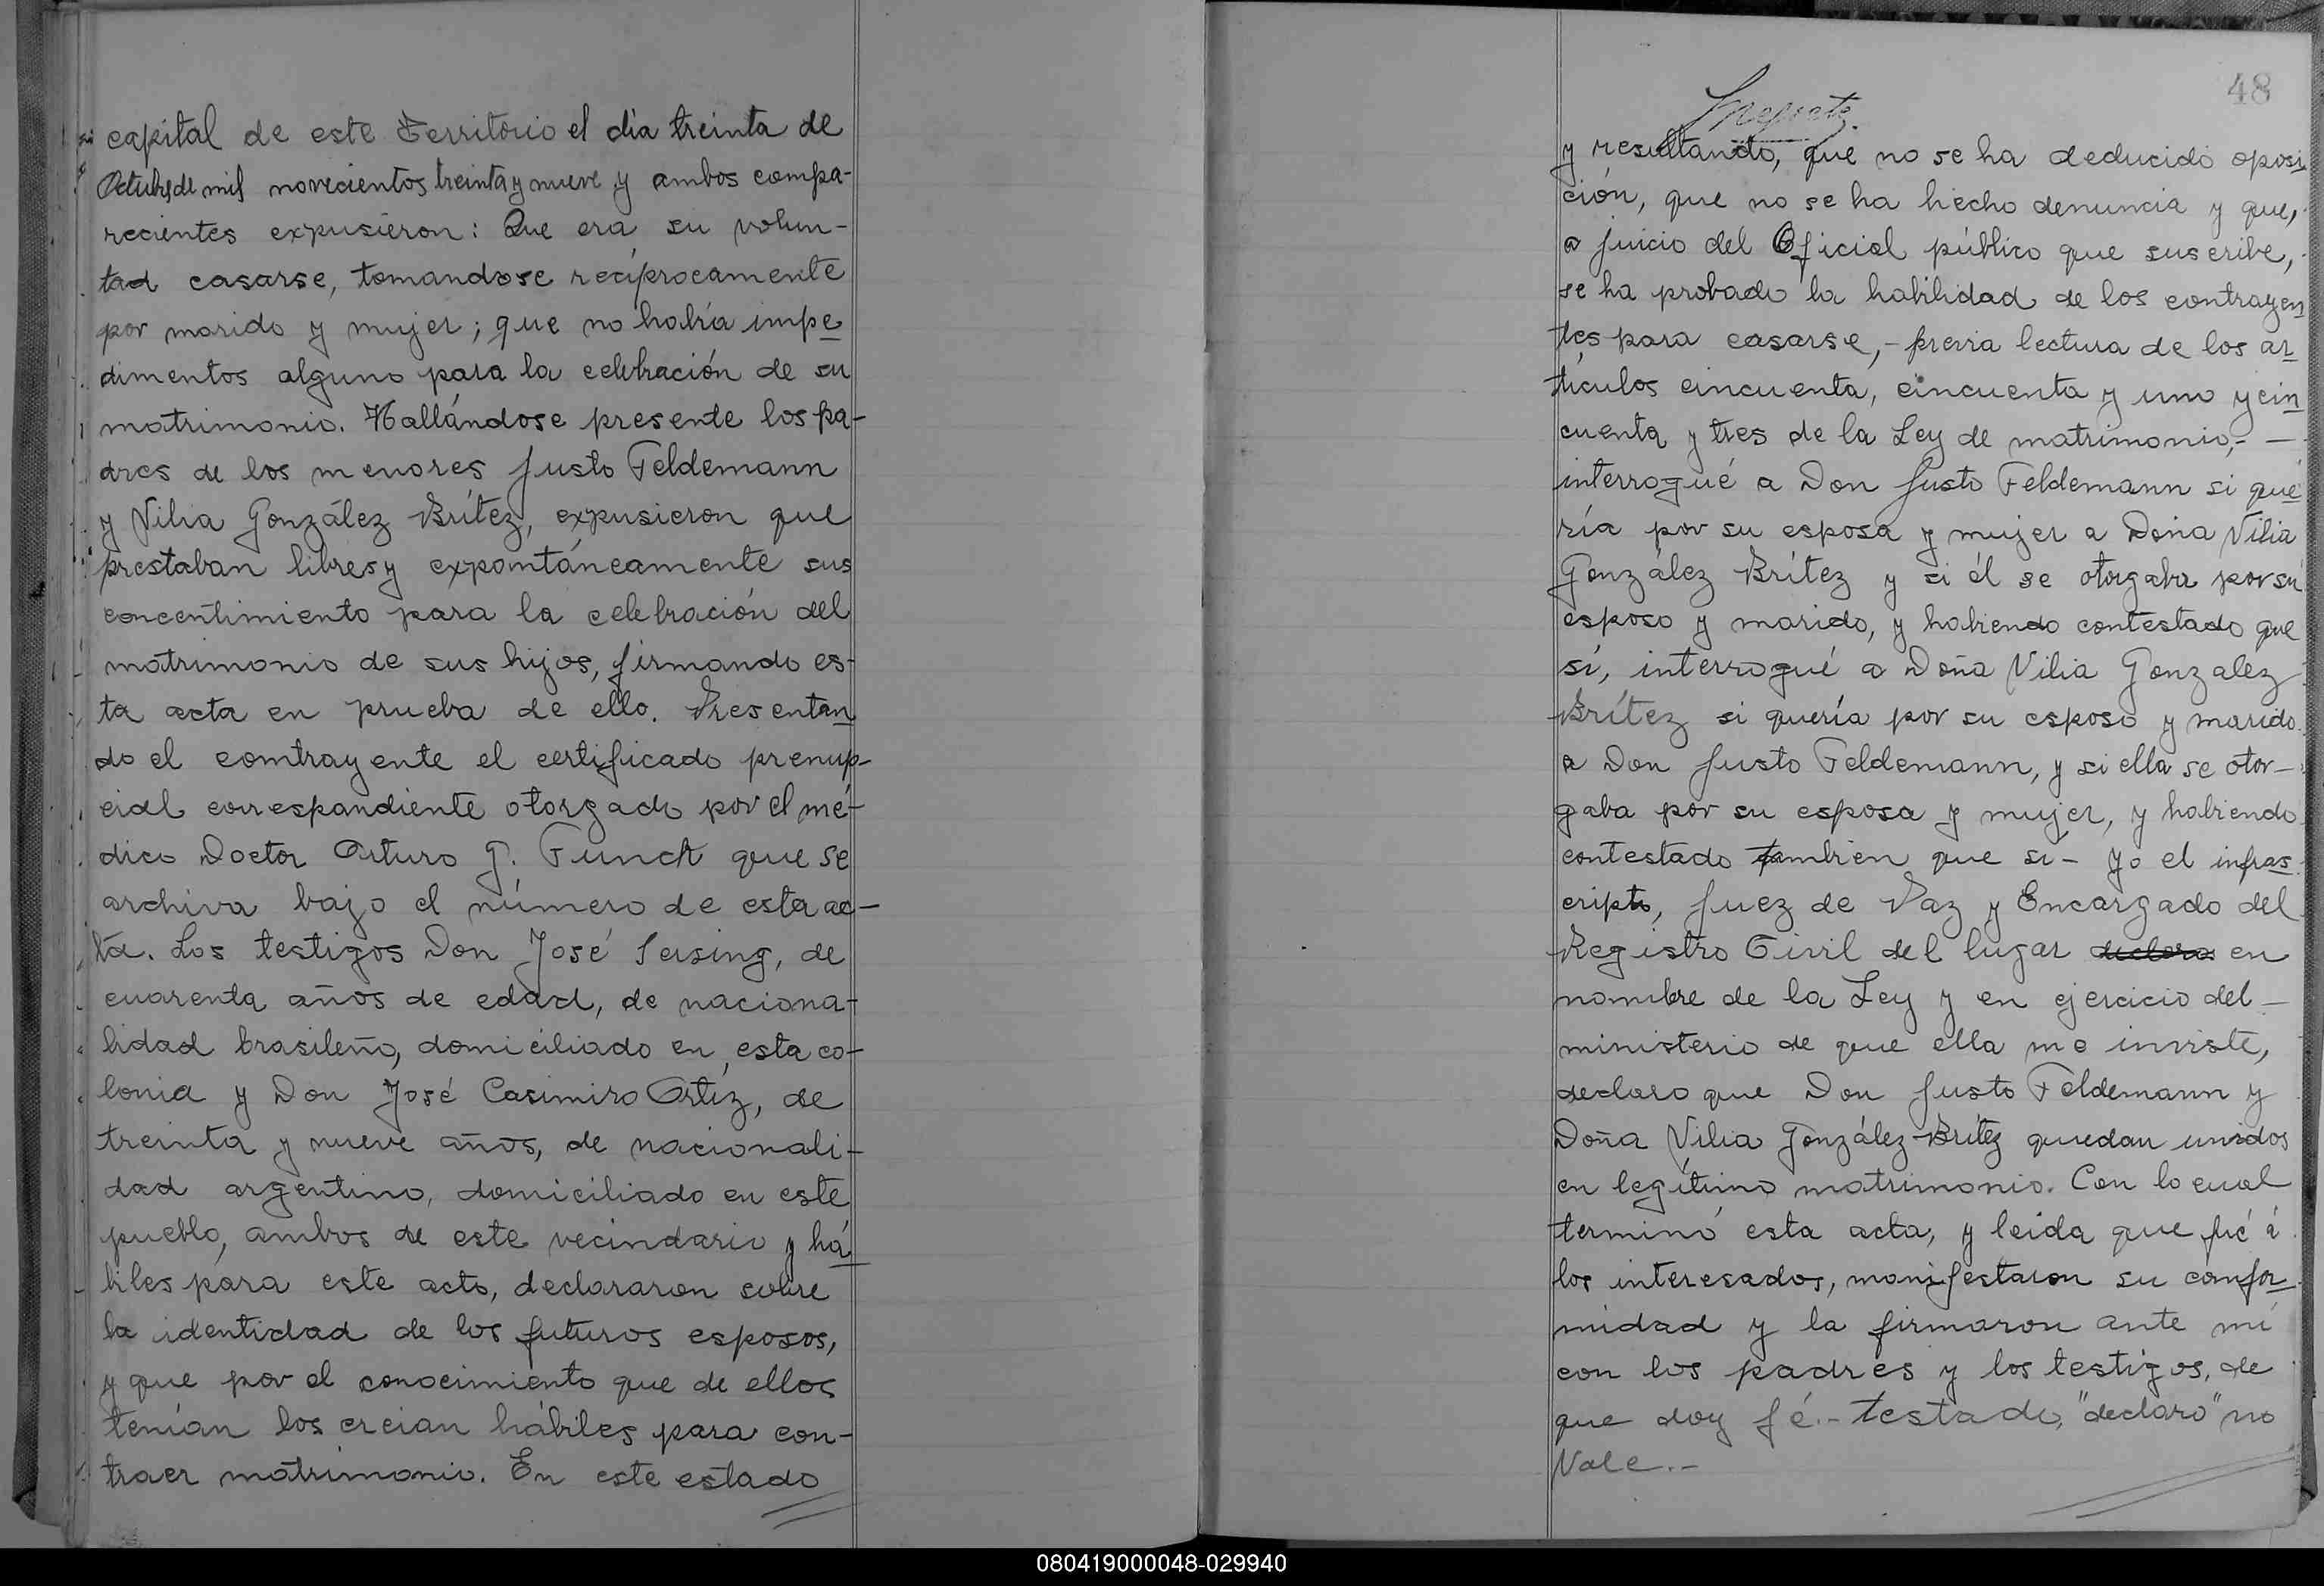 capital de este Territorio el dia treinta de
Octubre de mil novecientos treinta y nueve y ambos compa-
recientes expusieron: Que era su volun-
tad casarse, tomandose recíprocamente
por marido y mujer; que no había impe
dimentos alguno para la celebración de su
matrimonio. Hallándose presente los pa-
dres de los menores Justo Feldemann
y Vilia González Brítez, expusieron que
prestaban libres y expontáneamente sus
concentimiento para la celebración del
matrimonio de sus hijos, firmando es-
ta acta en prueba de ello. Presentan
do el contrayente el certificado prenup-
cial correspondiente otorgado por el mé-
dico Doctor Arturo G. Funck que se
archiva bajo el número de esta ac-
ta. Los testigos Don José, de
cuarenta años de edad, de naciona-
lidad brasileño, domiciliado en esta co-
lonia y Don José Casimiro Ortíz, de
treinta y nueve años, de nacionali-
dad argentino, domiciliado en este
pueblo, ambos de este vecindario y há
biles para este acto, declararon sobre
la identidad de los futuros esposos,
y que por el conocimiento que de ellos
tenían los creian hábiles para con-
traer matrimonio. En este estado
48
y resultando, que no se ha deducido oposi
ción, que no se ha hecho denuncia y que,
a juicio del Oficial público que suscribe,
se ha probado la habilidad de los contrayen
tes para casarse,- previa lectura de los ar
tículos cincuenta, cincuenta y uno y cin
cuenta y tres de la Ley de matrimonio,- —
interrogué a Don Justo Feldemann si que
ría por su esposa y mujer a Doña Vilia
González Brítez y si él se otorgaba por su
esposo y marido, y habiendo contestado que
sí, interrogué a Doña Vilia Gonzalez
Brítez si quería por su esposo y marido
a Don Justo Feldemann, y si ella se otor-
gaba por su esposa y mujer, y habiendo
contestado tambien que si - yo el infras
cripto, Juez de Paz y Encargado del
Registro Civil del lugar declaro en
nombre de la Ley y en ejercicio del -
ministerio de que ella me inviste,
declaro que Don Justo Feldemann y
Doña Vilia González Brítez quedan unidos
en legítimo matrimonio. Con lo cual
terminó esta acta, y leida que fué á
los interesados, manifestaron su confor
midad y la firmaron ante mí
con los padres y los testigos, de
que doy fé.- testado, "declaro" no
Vale.-
080419000048-029940